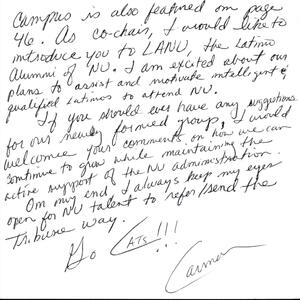 Campus is also featured on page
46. As co-chair, I would like to
introduce you to LANU, the Latino
Alumni of NU. I am excited about our
plans to assist and motivate intelligent &
qualified Latinos to attend NU.
If you should ever have any suggestions
for our newly formed group, I would
welcome your comments on how we can
continue to grow while maintaining the
active support of the NU administration.
On my end, I always keep my eyes
open for NU talent to refer/send the
Tribune way.
Go Cats!!!
Carmen